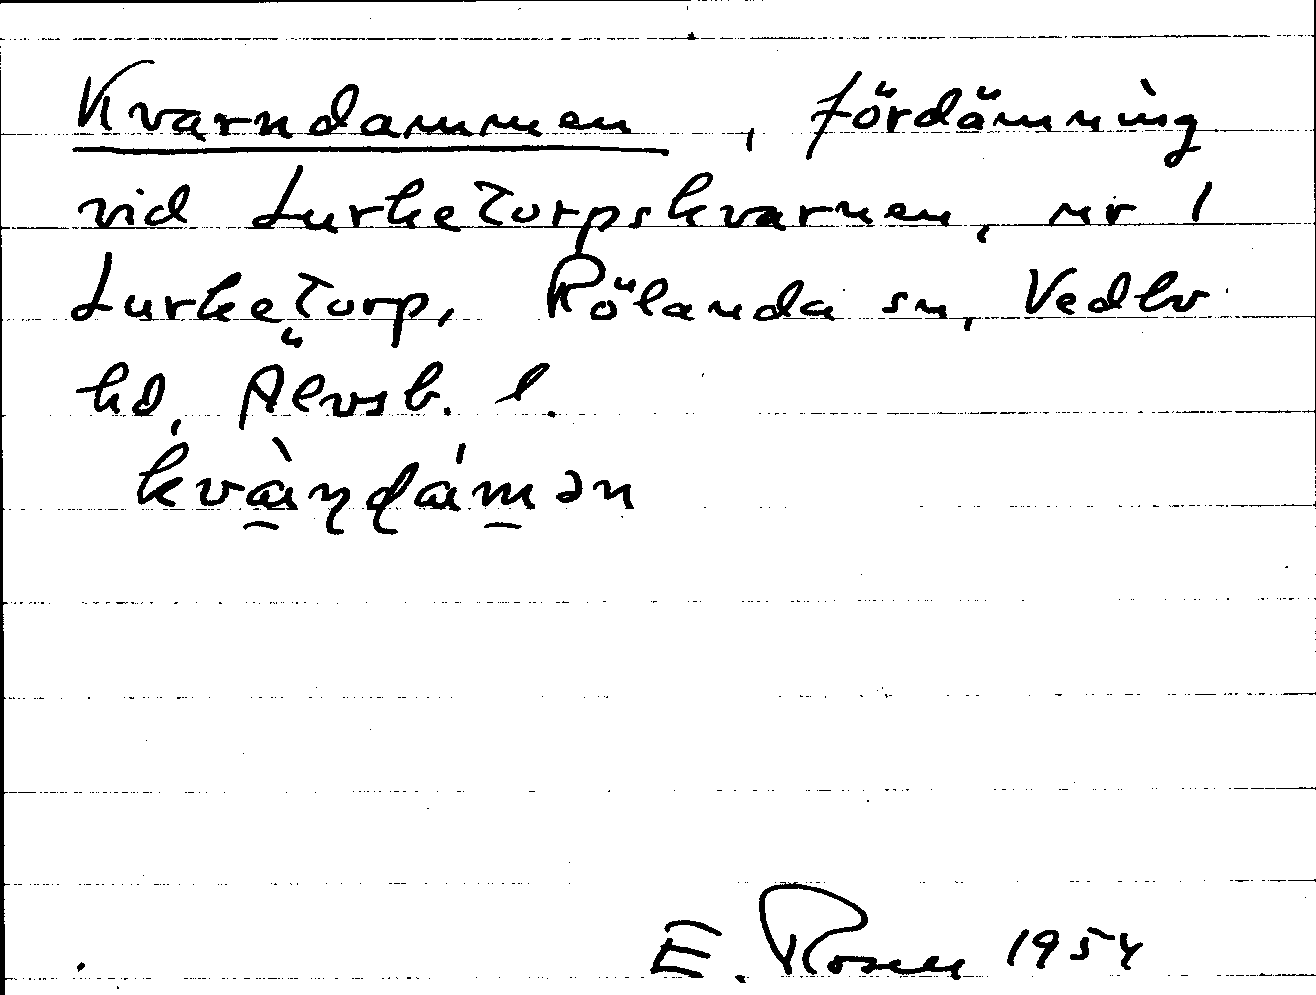 Kvarndammen, fördämning
vid Lurketorpskvarnen, nr 1
Lurketorp, Rölanda sn, Vedbo
hd, Älvsb. l.
kvàn̥ɖámən
E. Rosell 1954